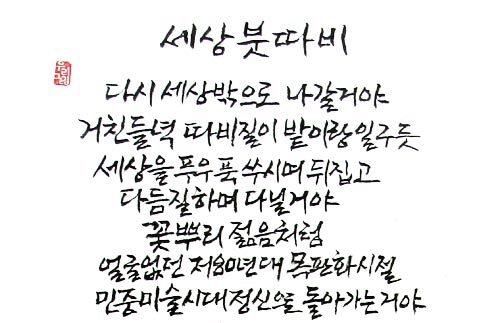 세상 붓 따비
우리그림
다시 세상밖으로 나갈거야
거친들녘 따비질이 밭이랑 일구듯
세상을 푸우 푹 쑤시며 뒤집고
다듬질하며 다닐거야
꽃뿌리 젊음처럼
얼굴없던 저80년대 목판화시절
민중미술시대정신으로 돌아가는거야